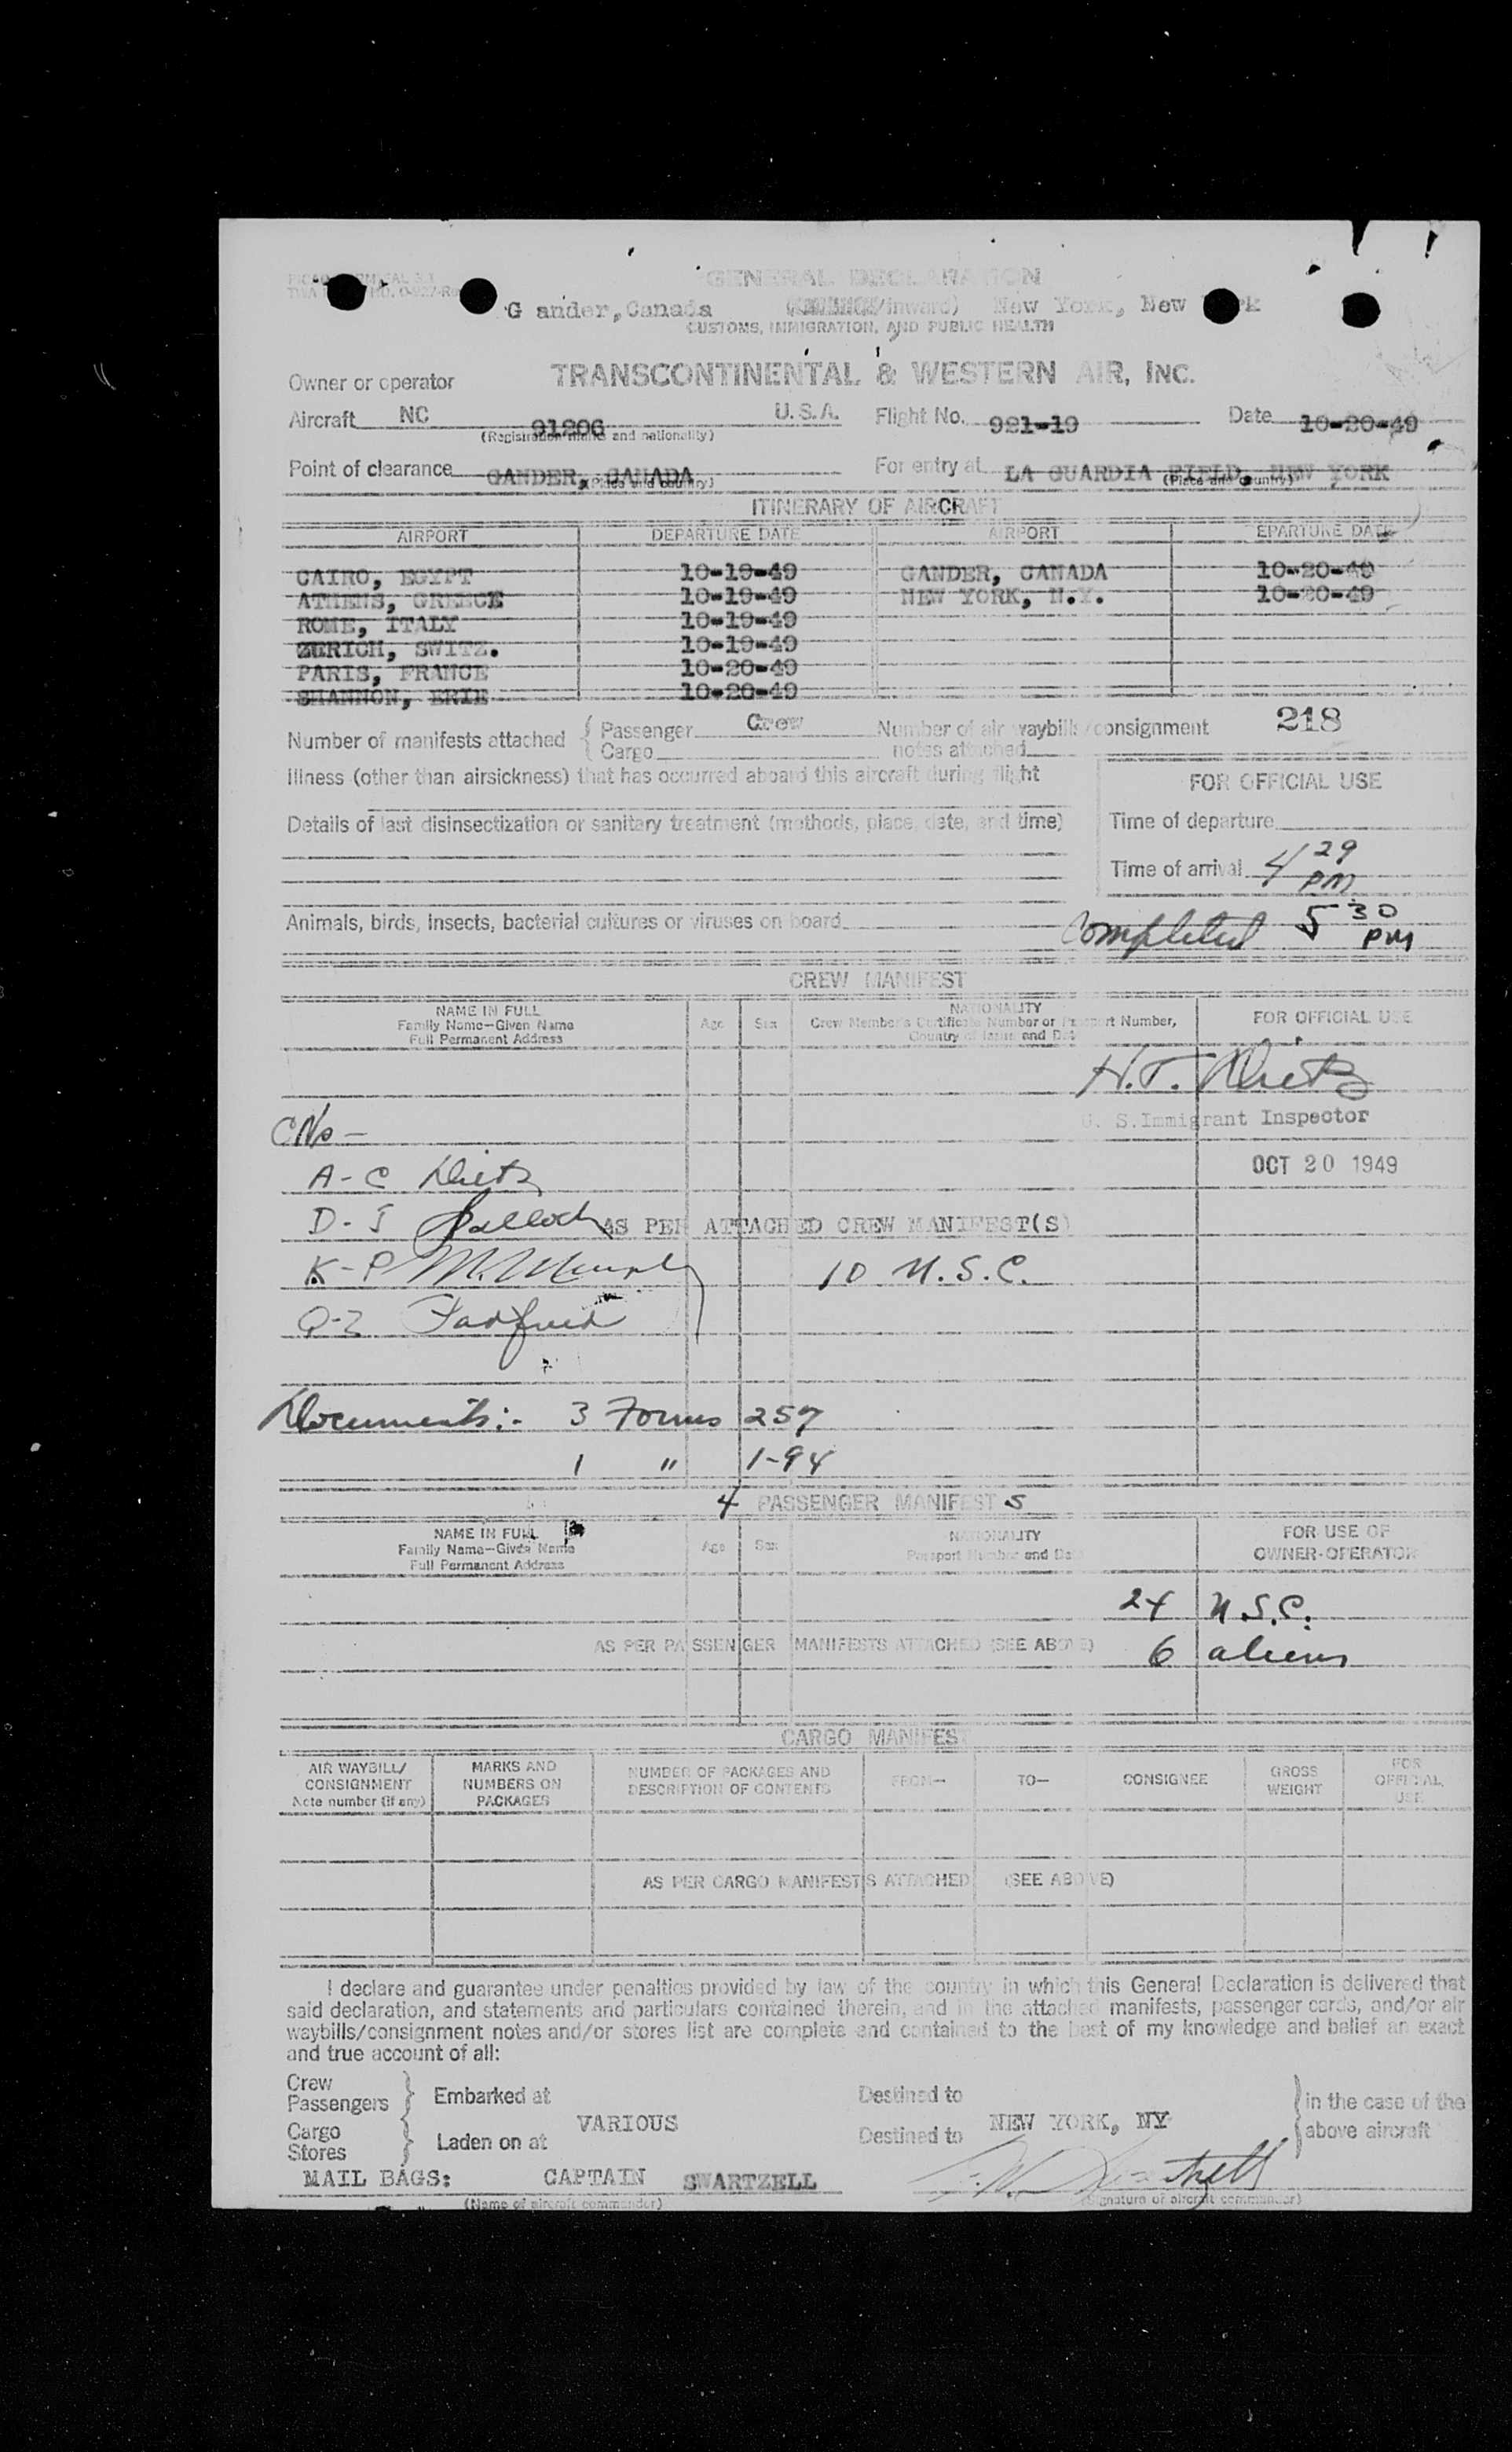 GENERAL DECLARATION
G ander, Canada (/inward) New York, New
CUSTOMS, IMMIGRATION, AND PUBLIC HEALTH
Owner or operator TRANSCONTINENTAL & WESTERN AIR, INC.
Aircraft NC 91206 U.S.A. Flight No. 921-19 Date 10-20-49
(Registration marks and nationality)
Point of clearance GANDER, CANADA For entry at LA GUARDIA FIELD, NEW YORK
(Place and country) (Place and country)
ITINERARY OF AIRCRAFT
AIRPORT DEPARTURE DATE AIRPORT EPARTURE DATE
CAIRO, EGYPT 10-19-49 GANDER, CANADA 10-20-49
ATHENS, GREECE 10-19-49 NEW YORK, N.Y. 10-20-49
ROME, ITALY 10-19-49
ZURICH, SWITZ. 10-19-49
PARIS, FRANCE 10-20-49
SHANNON, ERIE 10-20-49
Number of manifests attached { Passenger Crew Number of air waybills/consignment 218
{ Cargo notes attached
Illness (other than airsickness) that has occurred aboard this aircraft during flight
FOR OFFICIAL USE
Details of last disinsectization or sanitary treatment (methods, place, date, and time) Time of departure
Time of arrival 4 29 PM
Animals, birds, insects, bacterial cultures or viruses on board
Completed 5 30 PM
CREW MANIFEST
NAME IN FULL
Family Name—Given Name
Full Permanent Address
Age Sex
NATIONALITY
Crew Member's Certificate Number or Passport Number,
Country of Issue and Date
FOR OFFICIAL USE
H.T. Dietz
U. S. Immigrant Inspector
CNs -
A-C Dietz
OCT 20 1949
D-J
AS PER ATTACHED CREW MANIFEST(S)
K-P M. Murphy 10 U.S.C.
Q-Z
Documents:- 3 Forms 257
1 " 1-94
4 PASSENGER MANIFEST S
NAME IN FULL
Family Name—Given Name
Full Permanent Address
Age Sex
NATIONALITY
Passport Number and Date
FOR USE OF
OWNER-OPERATOR
24 U.S.C.
AS PER PASSENGER MANIFESTS ATTACHED (SEE ABOVE) 6 aliens
CARGO MANIFEST
AIR WAYBILL/
CONSIGNMENT
Note number (if any)
MARKS AND
NUMBERS ON
PACKAGES
NUMBER OF PACKAGES AND
DESCRIPTION OF CONTENTS
FROM—
TO—
CONSIGNEE
GROSS
WEIGHT
FOR
OFFICIAL
USE
AS PER CARGO MANIFESTS ATTACHED (SEE ABOVE)
I declare and guarantee under penalties provided by law of the country in which this General Declaration is delivered that
said declaration, and statements and particulars contained therein, and in the attached manifests, passenger cards, and/or air
waybills/consignment notes and/or stores list are complete and contained to the best of my knowledge and belief an exact
and true account of all:
Crew
Passengers } Embarked at Destined to } in the case of the
VARIOUS NEW YORK, NY
Cargo
Stores } Laden on at Destined to above aircraft
MAIL BAGS: CAPTAIN SWARTZELL
(Name of aircraft commander) (Signature of aircraft commander)